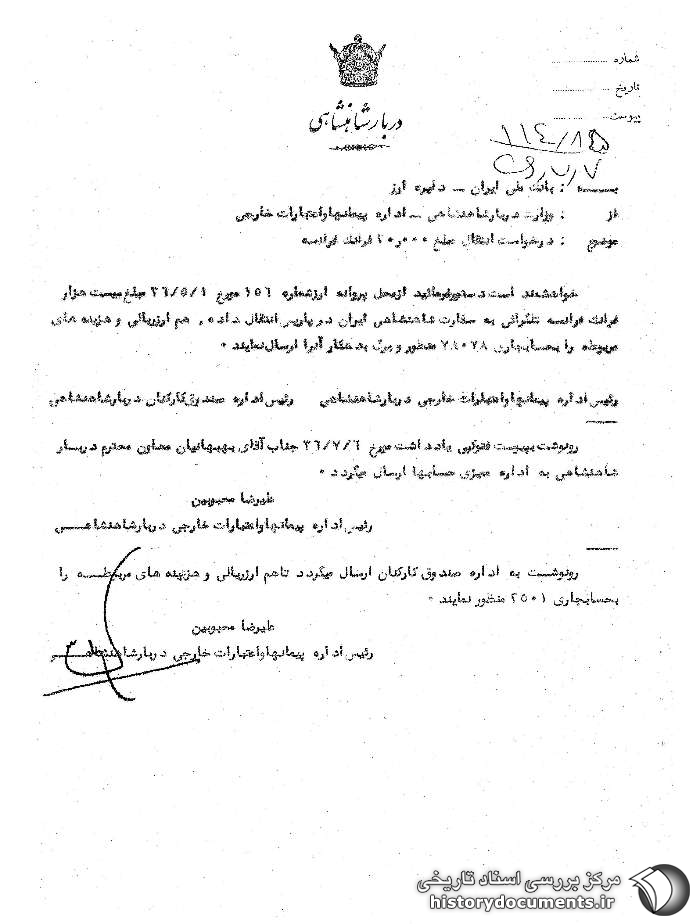 دربار شاهنشاهی
شماره
تاریخ
پیوست
۱۱٤/۸۵
بـــه : بانک ملی ایران ــ دایره ارز
از : وزارت دربار شاهنشاهی ــ اداره پیمانها و اعتبارات خارجی
موضوع : درخواست انتقال مبلغ ۲۰٫۰۰۰ فرانک فرانسه
خواهشمند است دستور فرمائید از محل پروانه ارز شماره ۱۵٦ مورخ ۳٦/۵/۱ مبلغ بیست هزار
فرانک فرانسه تلگرافی به سفارت شاهنشاهی ایران در پاریس انتقال داده ، هم ارز ریالی و هزینه های
مربوطه را بحساب جاری منظور و برگ بدهکار آنرا ارسال نمایند ۰
رئیس اداره پیمانها و اعتبارات خارجی دربار شاهنشاهی رئیس اداره صندوق کارکنان دربار شاهنشاهی
رونوشت بپیوست فتوکپی یادداشت مورخ ۳٦/۷/٦ جناب آقای بهبهانیان معاون محترم دربار
شاهنشاهی به اداره ممیزی حسابها ارسال میگردد ۰
علیرضا محبوبین
رئیس اداره پیمانها و اعتبارات خارجی دربار شاهنشاهــی
رونوشت به اداره صندوق کارکنان ارسال میگردد تا هم ارز ریالی و هزینه های مربوطــه را
بحساب جاری ۲۵۰۱ منظور نمایند ۰
علیرضا محبوبین
رئیس اداره پیمانها و اعتبارات خارجی دربار شاهنشاهــی
مرکز بررسی اسناد تاریخی
historydocuments.ir